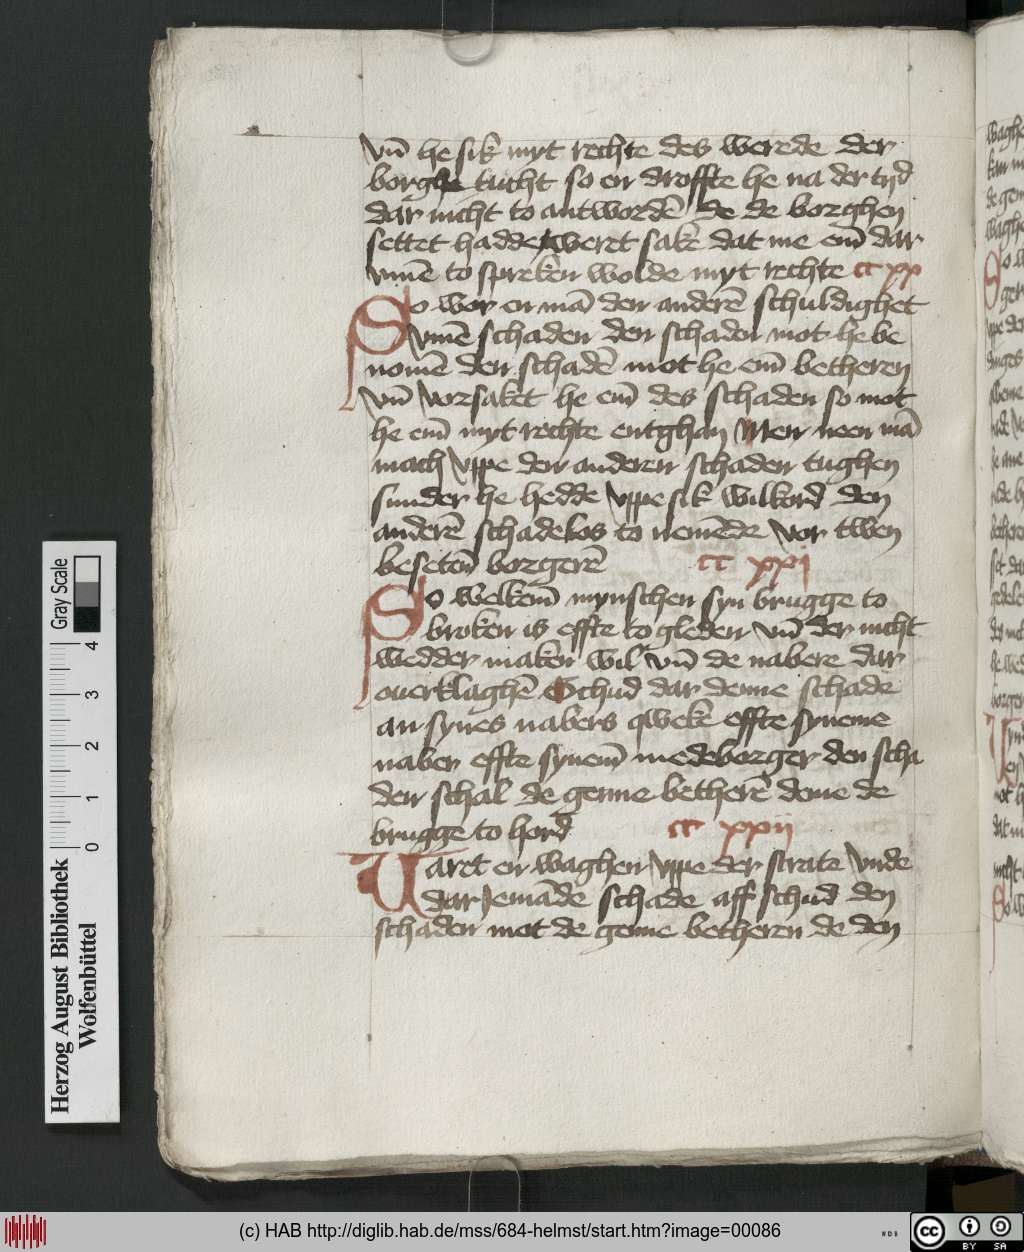 vn̄ he sik myt rechte des werede der
borghe tucht so en droffte he na der tijd
dar nicht to antwordē de de borghen
settet hadde weret sake dat me em̄ dar
vmē to spreken wolde myt rechte cc xx
So wor en mā den anderē schuldighet
vmē schaden den schaden mot he be
nomē den schadē mot he em̄ betheren
vn̄ vorsaket he em̄ des schaden so mot
he em̄ myt rechte entghan Men neen mā
mach vppe den anderen schaden tughen
sunder he hedde vppe sik wilkord den
anderē schadelos to nemēde vor twen
besetē borgerē cc xxj
So welkem̄ mynschen syn brugge to
broken is effte to gleden vn̄ der nicht
wedder maken wil vn̄ de nabere dar
ouerklaghē Schud dar denne schade
an synes nabers qweke effte syneme
naber effte synem̄ medeborger den scha
den schal de genne betherē deme de
brugge to hord cc xxij
Varet en waghen vppe der strate vnde
dar Jemāde schade aff schud den
schaden mot de genne betheren de den
Herzog August Bibliothek
Wolfenbüttel
Gray Scale
0 1 2 3 4
(c) HAB http://diglib.hab.de/mss/684-helmst/start.htm?image=00086
cc BY SA